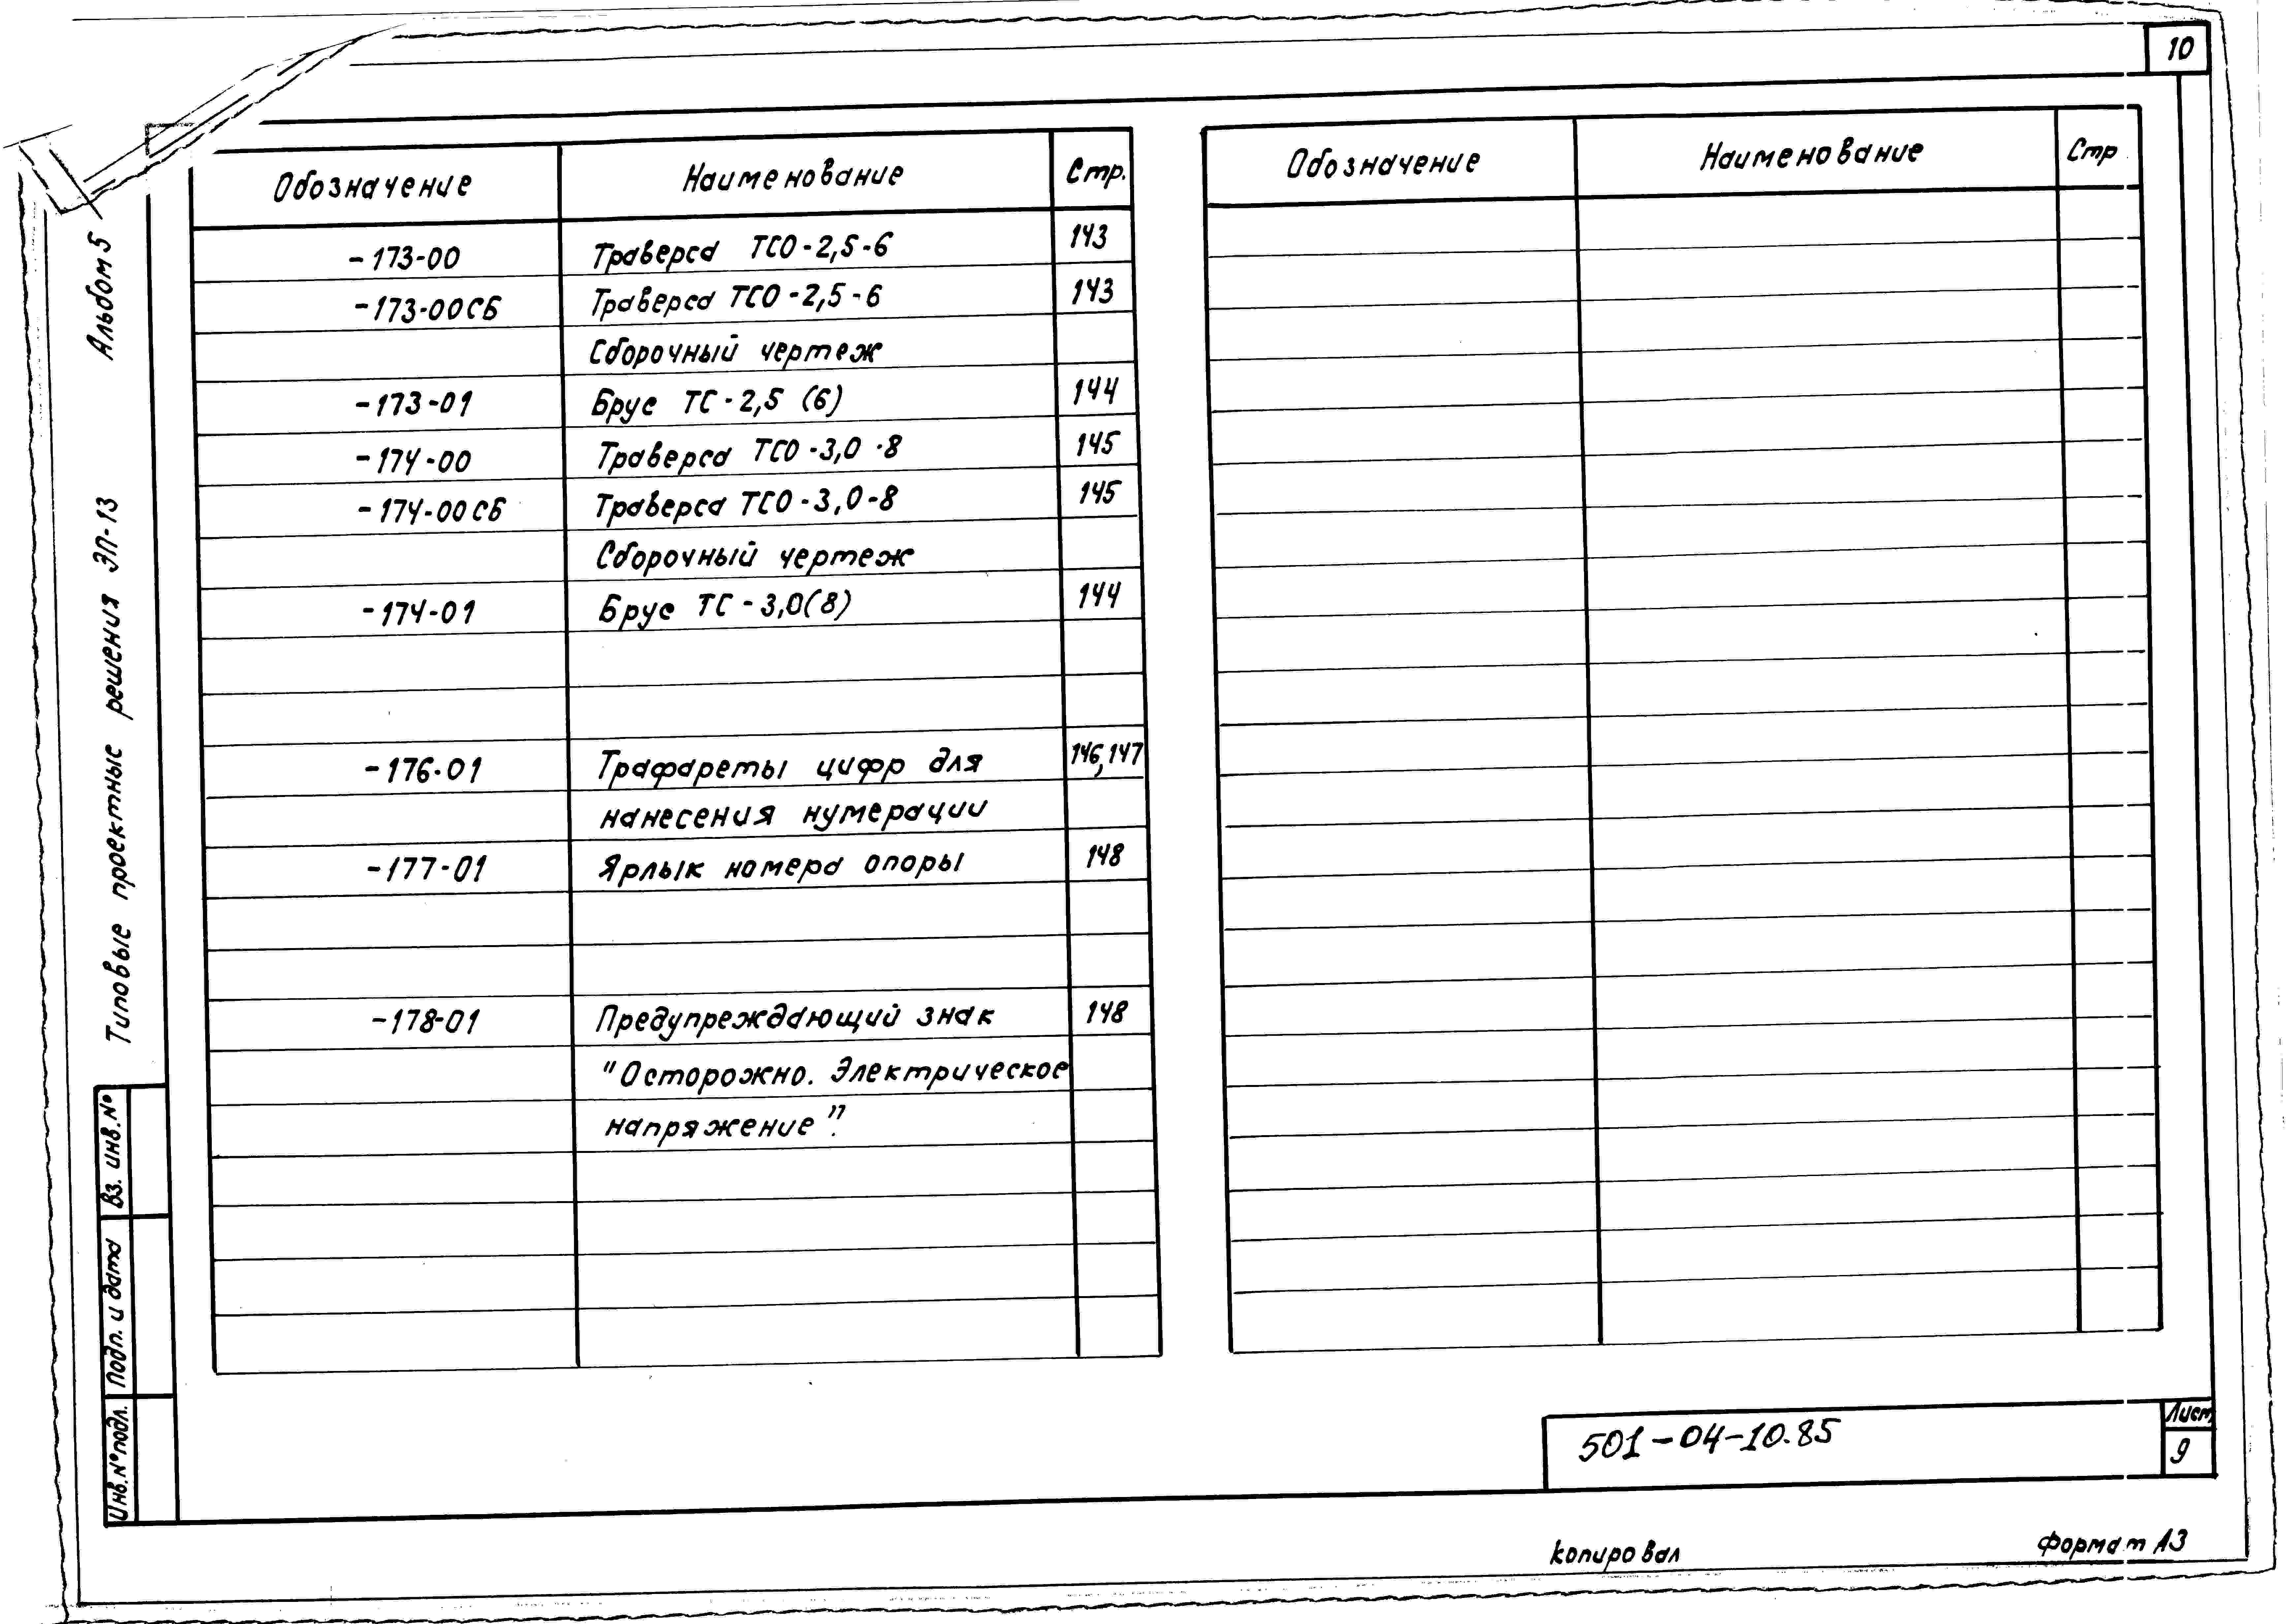 10
Альбом 5
Типовые проектные решения ЭП-13
Обозначение Наименование Стр.
-173-00 Траверса ТСО-2,5-6 143
-173-00СБ Траверса ТСО-2,5-6 143
Сборочный чертеж
-173-01 Брус ТС-2,5 (6) 144
-174-00 Траверса ТСО-3,0-8 145
-174-00СБ Траверса ТСО-3,0-8 145
Сборочный чертеж
-174-01 Брус ТС-3,0(8) 144
-176-01 Трафареты цифр для 146,147
нанесения нумерации
-177-01 Ярлык номера опоры 148
-178-01 Предупреждающий знак 148
"Осторожно. Электрическое
напряжение".
Обозначение Наименование Стр
Вз. инв. №
Подп. и дата
Инв. № подл.
501-04-10.85
Лист
9
копировал
Формат А3